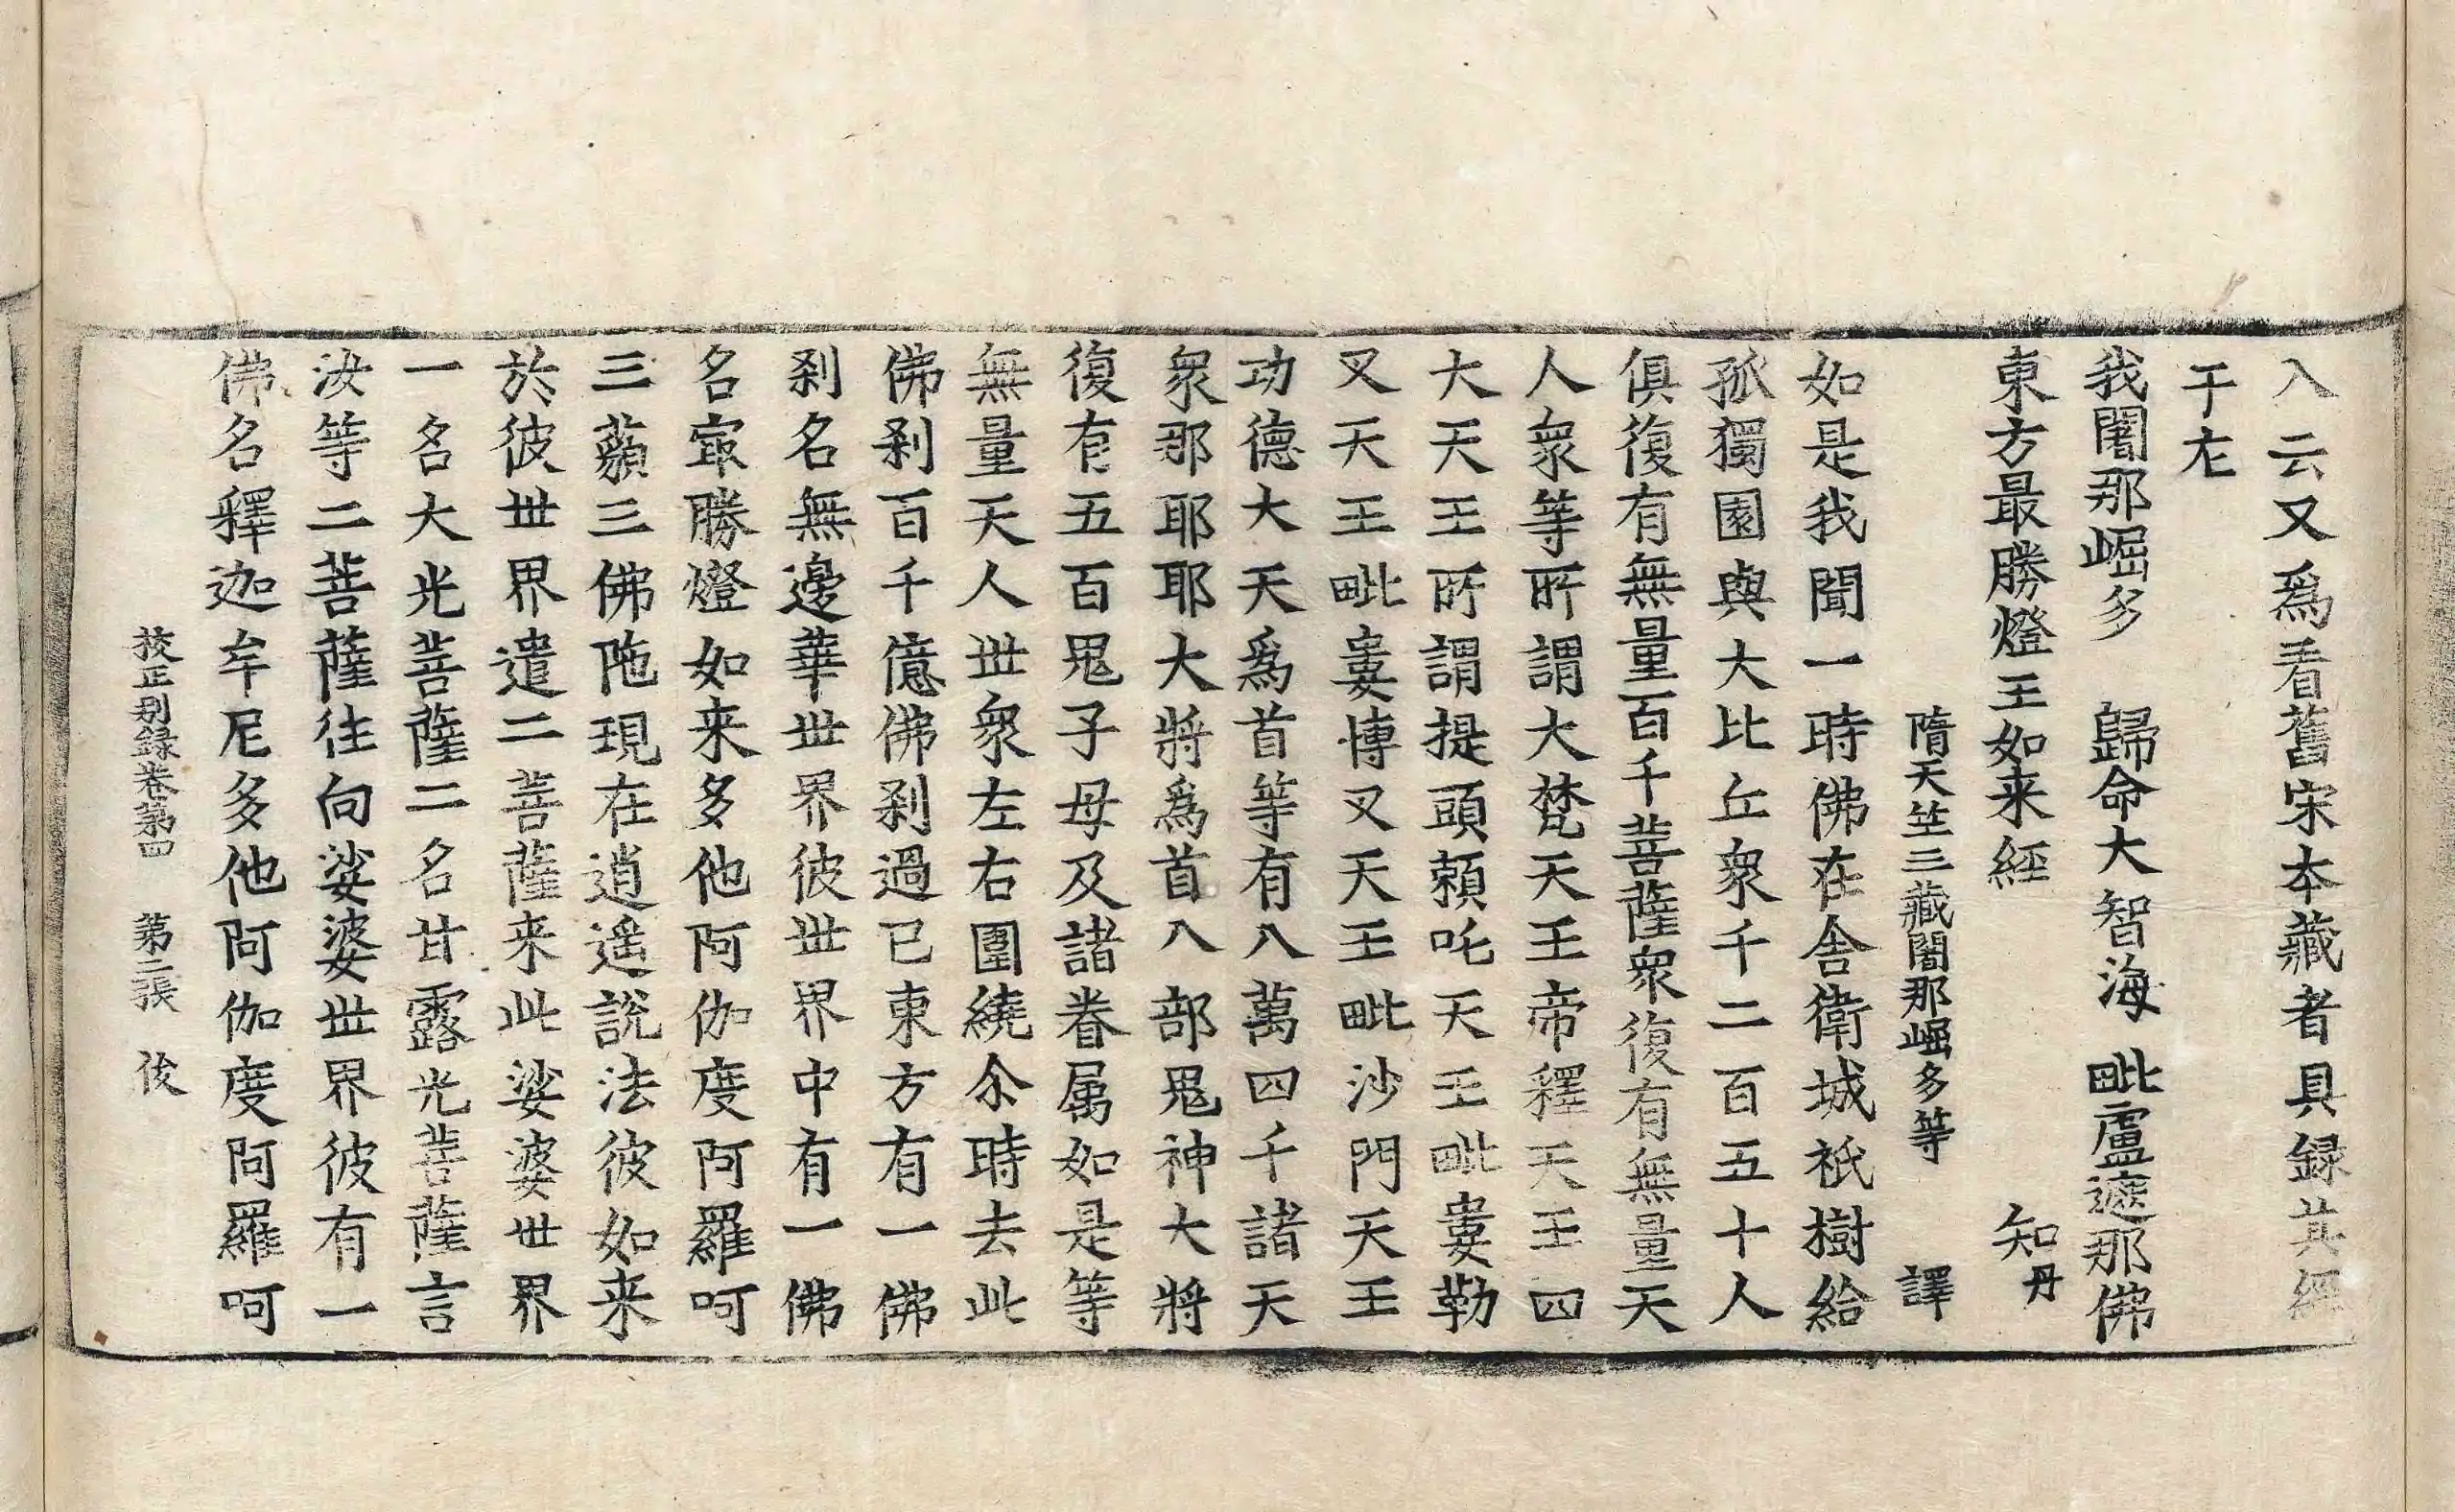 入云又爲看舊宋本藏者具録其經
于左
我闍那崛多 歸命大智海 毗盧遮那佛
東方最勝燈王如来經 知 丹
隋天竺三藏闍那崛多等 譯
如是我聞一時佛在舎衛城祇樹給
孤獨園與大比丘衆千二百五十人
俱復有無量百千菩薩衆復有無量天
人衆等所謂大梵天王帝釋天王四
大天王所謂提頭頼吒天王毗婁勒
叉天王毗婁博叉天王毗沙門天王
功德大天爲首等有八萬四千諸天
衆那耶耶大將爲首八部鬼神大將
復有五百鬼子母及諸眷属如是等
無量天人世衆左右圍繞尒時去此
佛刹百千億佛刹過已東方有一佛
刹名無邊華世界彼世界中有一佛
名㝡勝燈如来多他阿伽度阿羅呵
三藐三佛陁現在逍遥説法彼如来
於彼世界遣二菩薩来此娑婆世界
一名大光菩薩二名甘露光菩薩言
汝等二菩薩往向娑婆世界彼有一
佛名釋迦牟尼多他阿伽度阿羅呵
挍正别録卷第四 第二張 俊